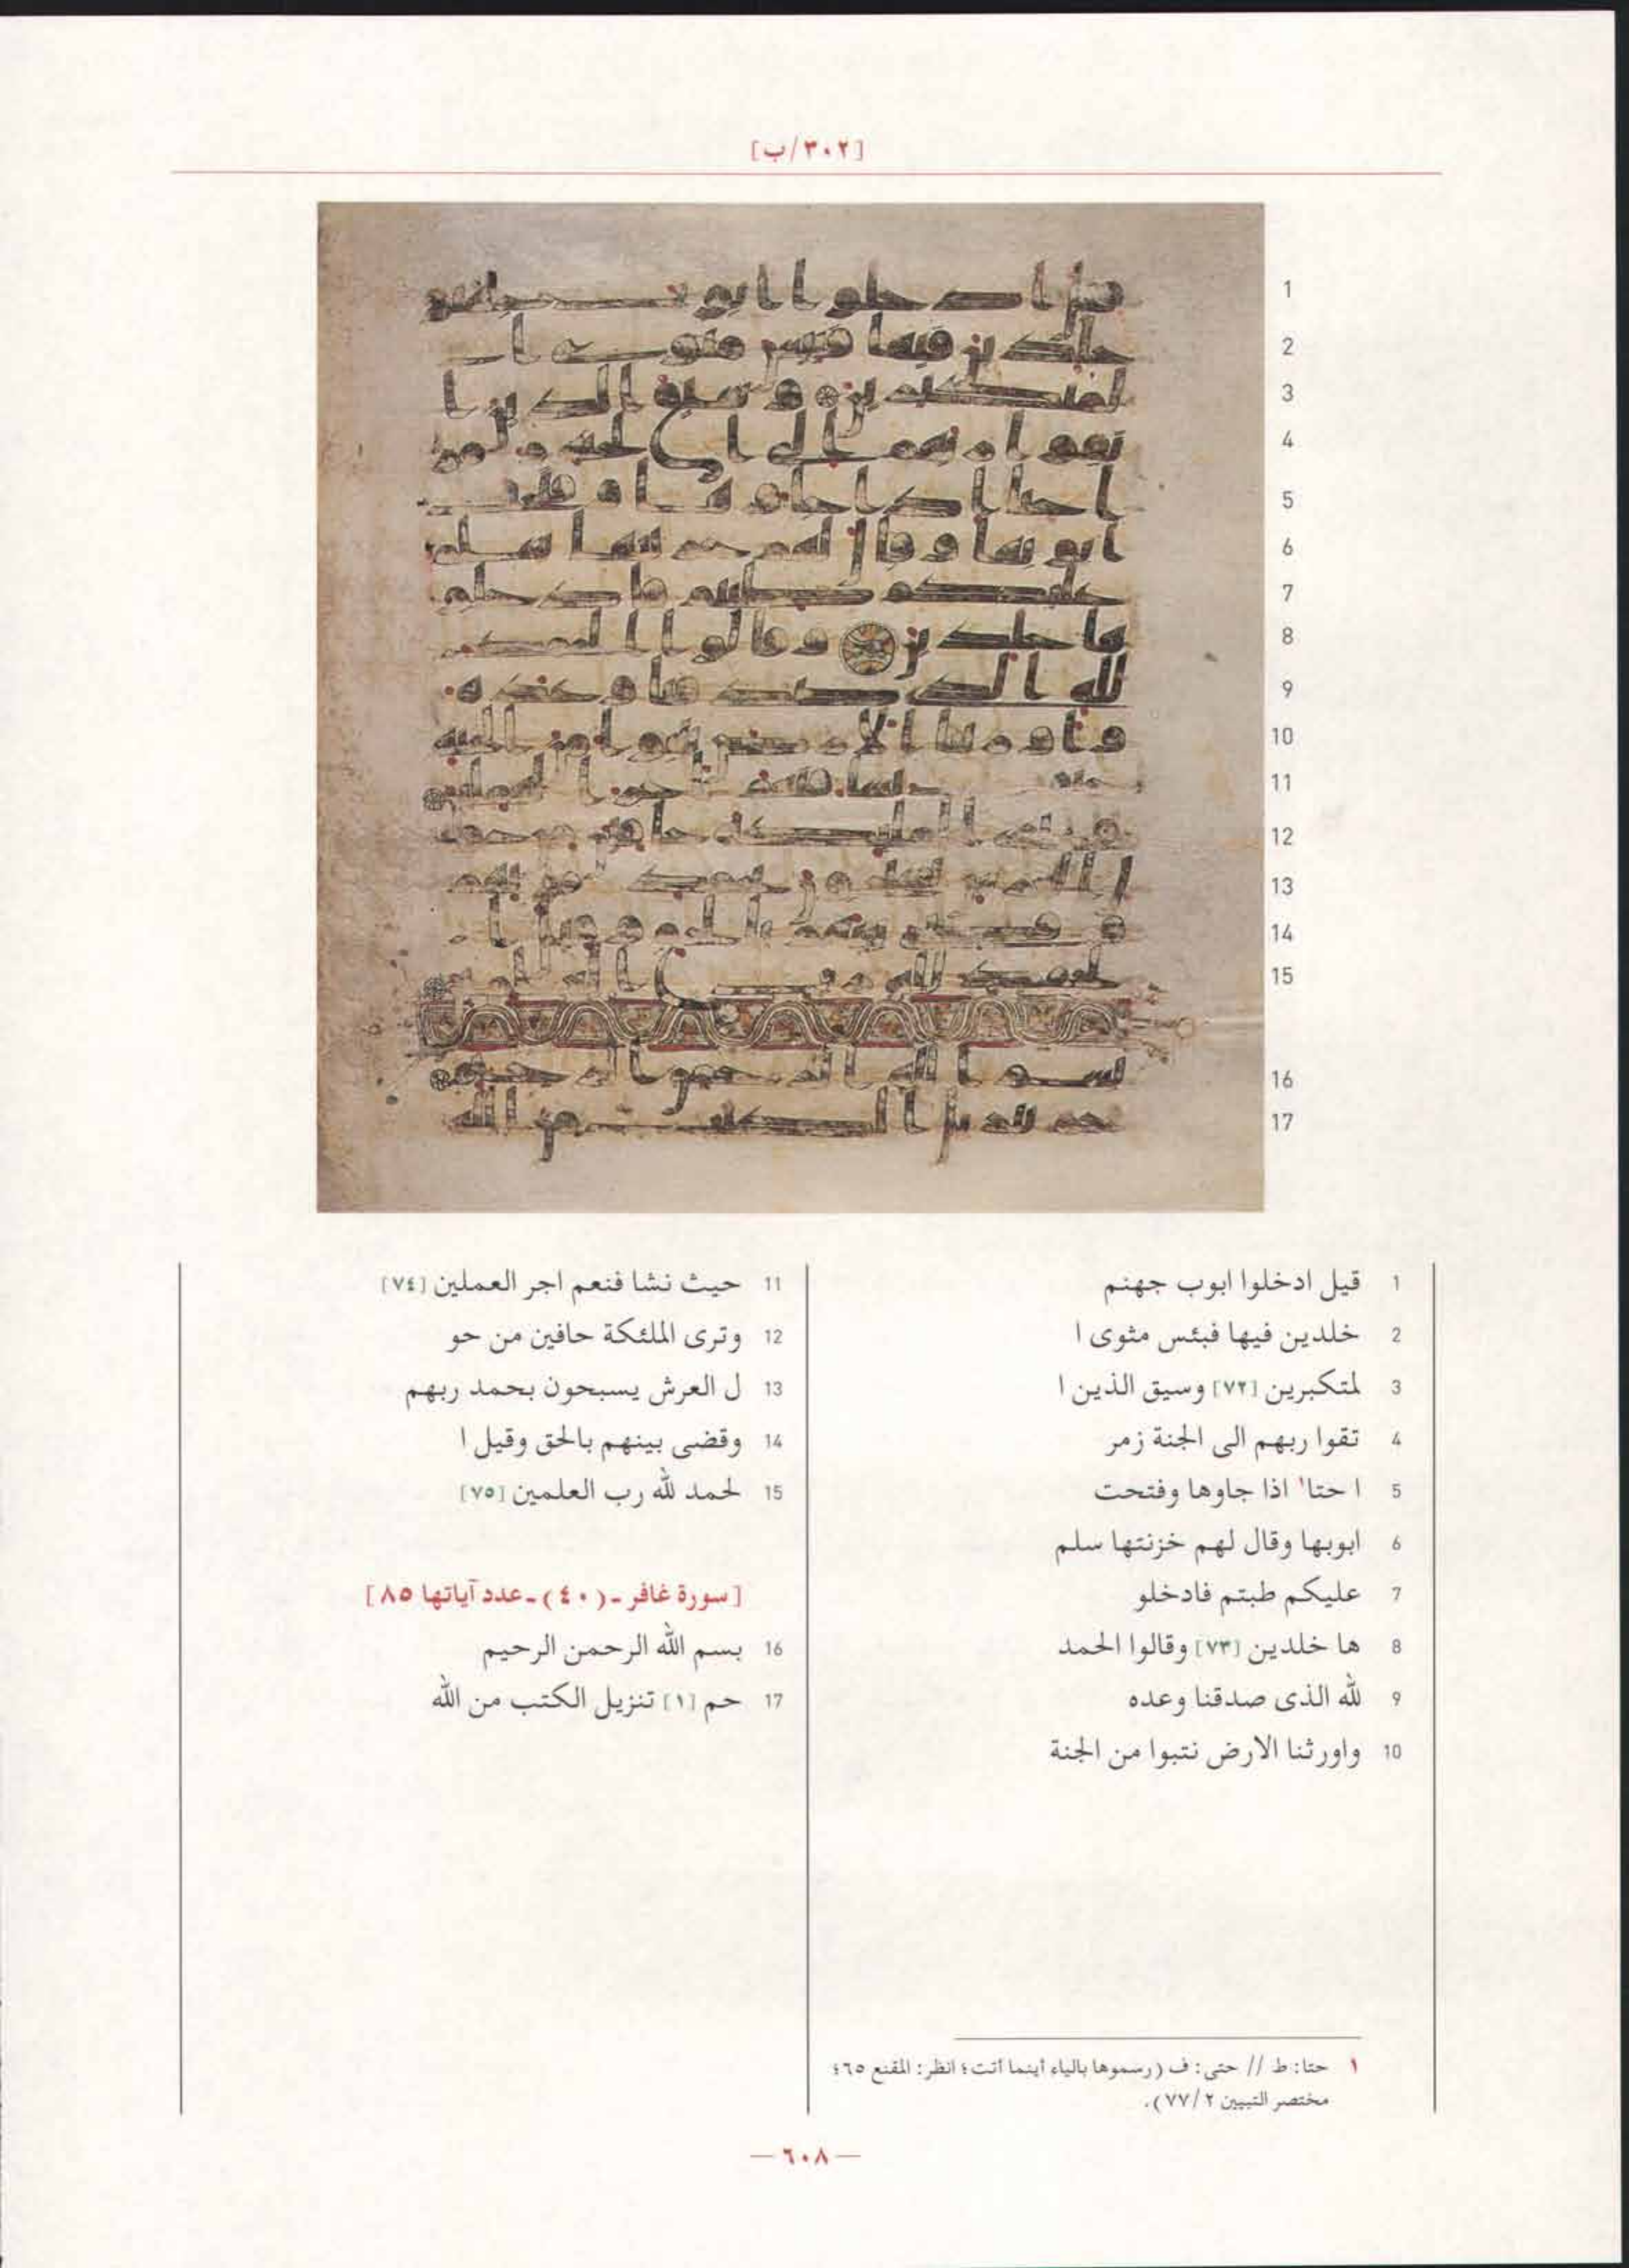 [٣٠٢/ب]
1
2
3
4
5
6
7
8
9
10
11
12
13
14
15
16
17
1 قيل ادخلوا ابوب جهنم
2 خلدين فيها فبئس مثوى ا
3 لمتكبرين [٧٢] وسيق الذين ا
4 تقوا ربهم الى الجنة زمر
5 ا حتا١ اذا جاوها وفتحت
6 ابوبها وقال لهم خزنتها سلم
7 عليكم طبتم فادخلو
8 ها خلدين [٧٣] وقالوا الحمد
9 لله الذى صدقنا وعده
10 واورثنا الارض نتبوا من الجنة
11 حيث نشا فنعم اجر العملين [٧٤]
12 وترى الملئكة حافين من حو
13 ل العرش يسبحون بحمد ربهم
14 وقضى بينهم بالحق وقيل ا
15 لحمد لله رب العلمين [٧٥]
[سورة غافر ـ (٤٠) ـ عدد آياتها ٨٥]
16 بسم الله الرحمن الرحيم
17 حم [١] تنزيل الكتب من الله
١ حتا: ط // حتى: ف (رسموها بالياء أينما أتت؛ انظر: المقنع ٦٥؛
مختصر التبيين ٢/ ٧٧).
— ٦٠٨ —